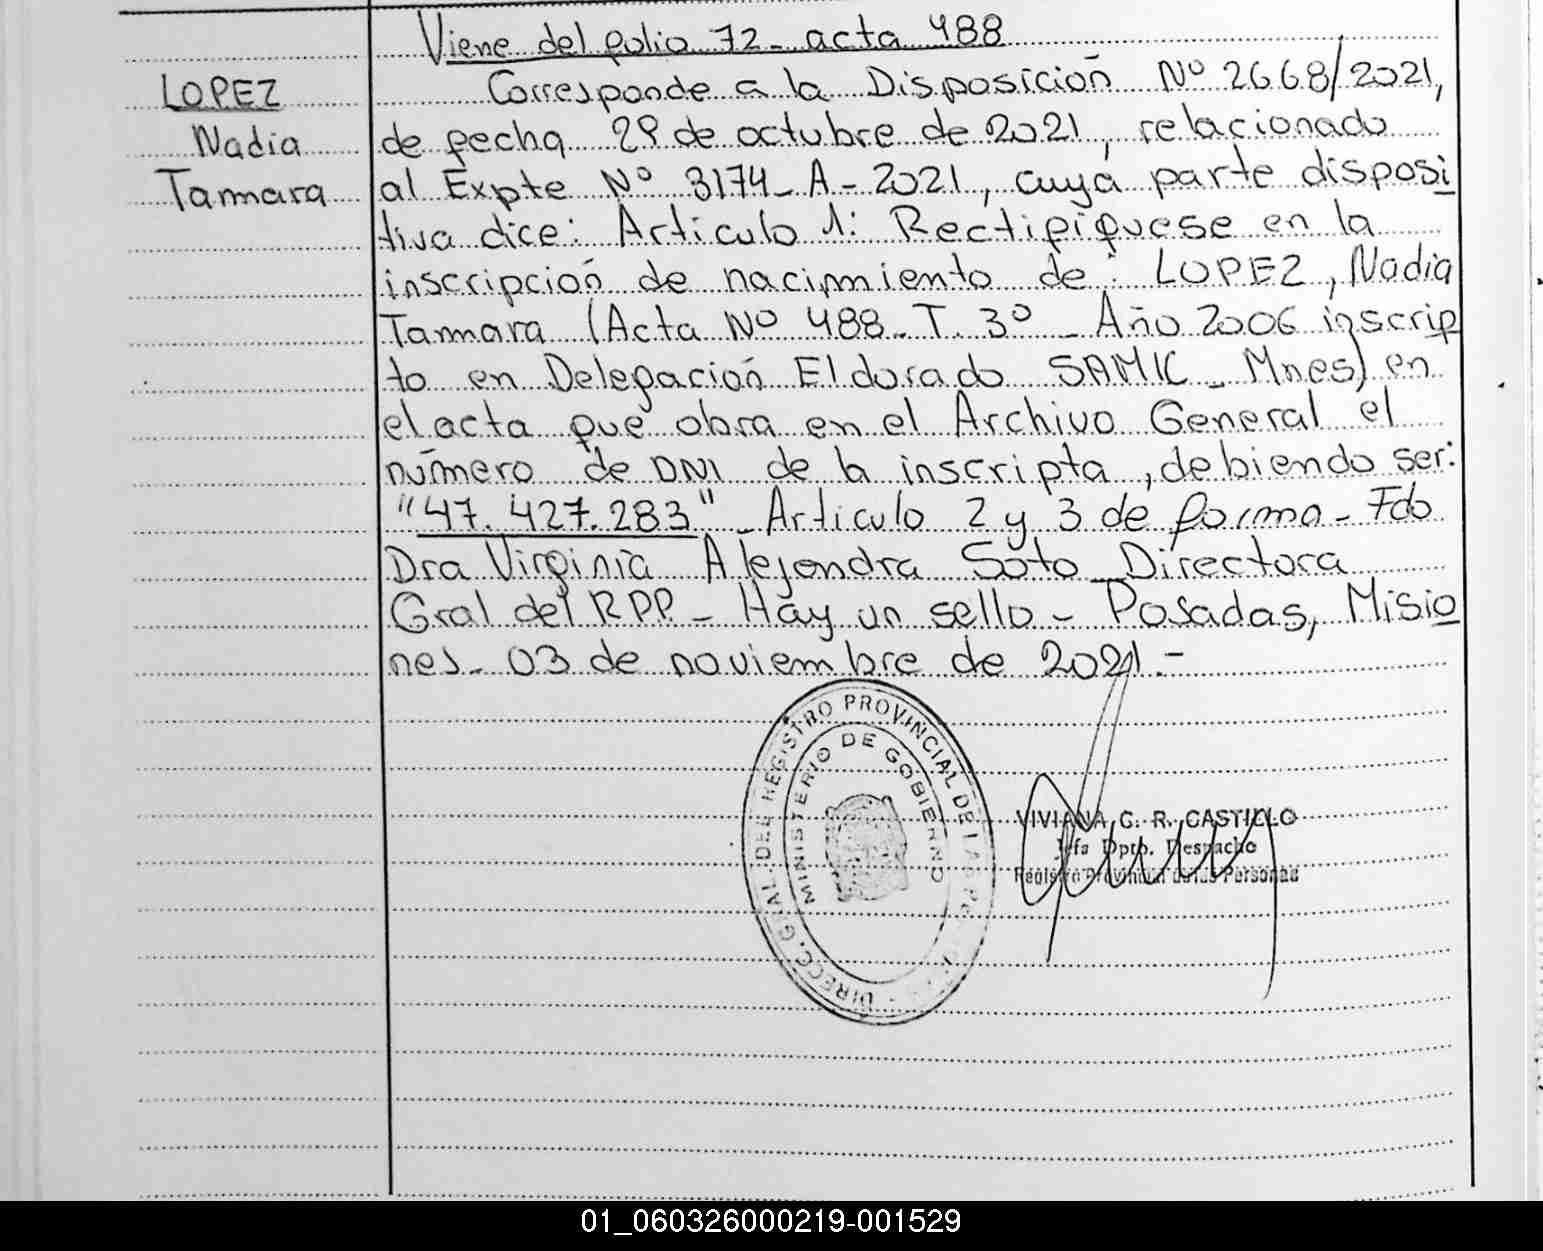 Viene del folio 72 - acta 488
LOPEZ
Nadia
Tamara
Corresponde a la Disposición Nº 2668/2021,
de fecha 29 de octubre de 2021, relacionado
al Expte Nº 3174-A-2021, cuya parte disposi
tiva dice: Articulo 1: Rectifíquese en la
inscripción de nacimiento de: LOPEZ, Nadia
Tamara (Acta Nº 488 - T. 3º - Año 2006 inscrip
to en Delegación Eldorado SAMIC - Mnes) en
el acta que obra en el Archivo General el
número de DNI de la inscripta, debiendo ser:
"47.427.283" - Articulo 2 y 3 de forma - Fdo
Dra Virginia Alejandra Soto Directora
Gral del RPP. - Hay un sello - Posadas, Misio
nes - 03 de noviembre de 2021.-
DIRECC. GRAL. DEL REGISTRO PROVINCIAL DE LAS
MINISTERIO DE GOBIERNO
VIVIANA C. R. CASTILLO
Jefa Dpto. Despacho
Registro Provincial de las Personas
01_060326000219-001529